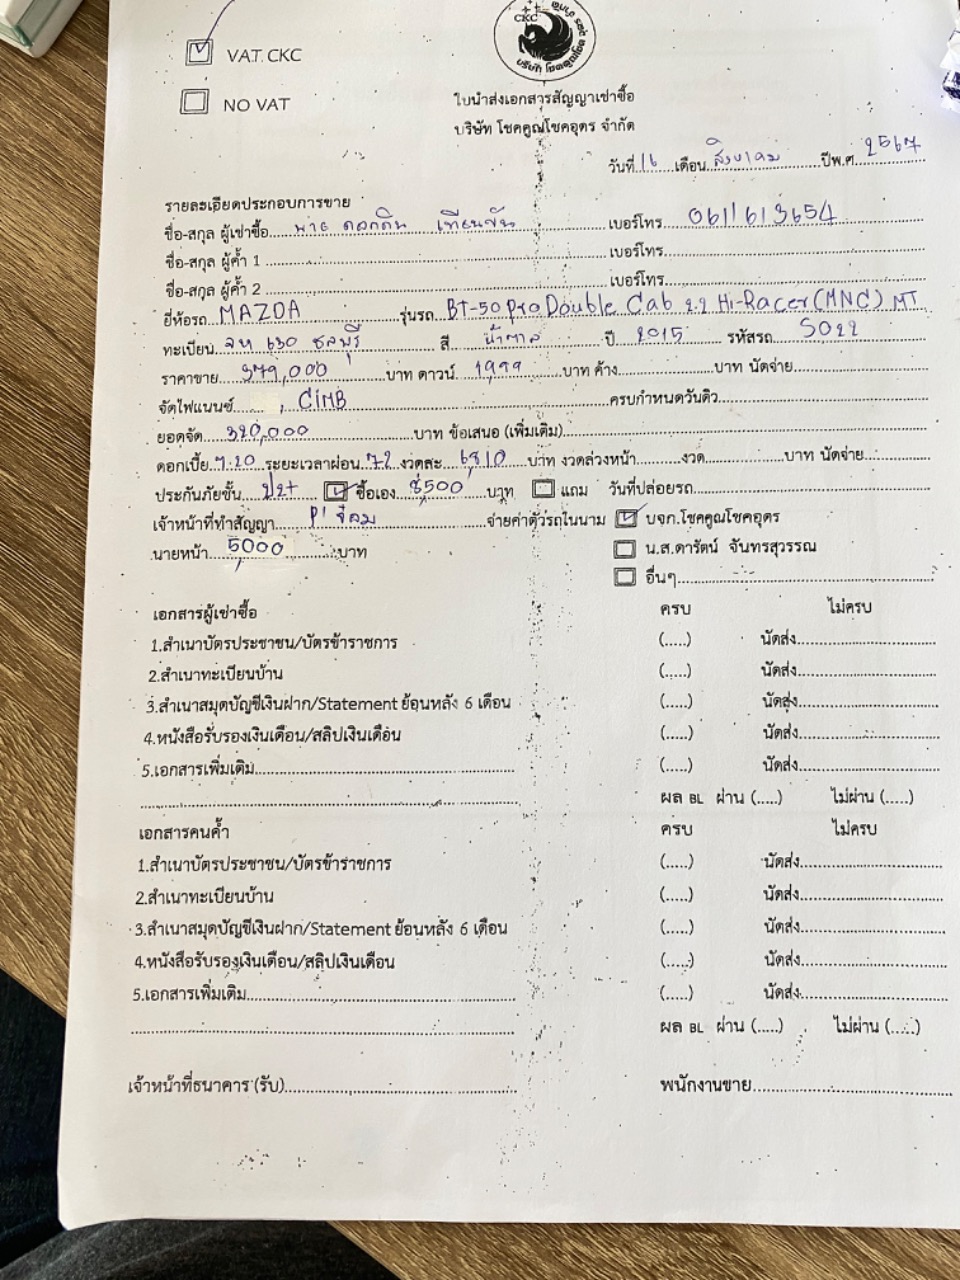 VAT. CKC
CKC
NO VAT
ใบนำส่งเอกสารสัญญาเช่าซื้อ
บริษัท โชคคูณโชคอุดร จำกัด
วันที่ 16 เดือน สิงหาคม ปีพ.ศ 2567
รายละเอียดประกอบการขาย
ชื่อ-สกุล ผู้เช่าซื้อ นาย ดอกดิน เทียนขัน เบอร์โทร 0611613654
ชื่อ-สกุล ผู้ค้ำ 1 เบอร์โทร
ชื่อ-สกุล ผู้ค้ำ 2 เบอร์โทร
ยี่ห้อรถ MAZDA รุ่นรถ BT-50 Pro Double Cab 2.2 Hi-Racer (MNC) MT
ทะเบียน 630 ชลบุรี สี น้ำตาล ปี 2015 รหัสรถ 5022
ราคาขาย 379,000 บาท ดาวน์ 1999 บาท ค้าง บาท นัดจ่าย
จัดไฟแนนซ์ , CIMB ครบกำหนดวันดิว
ยอดจัด 320,000 บาท ข้อเสนอ (เพิ่มเติม)
ดอกเบี้ย 7.20 ระยะเวลาผ่อน 72 งวดละ 6,810 บาท งวดล่วงหน้า งวด บาท นัดจ่าย
ประกันภัยชั้น ป2+ ซื้อเอง 8,500 บาท แถม วันที่ปล่อยรถ
เจ้าหน้าที่ทำสัญญา จ่ายค่าตัวรถในนาม บจก.โชคคูณโชคอุดร
นายหน้า 5,000 บาท น.ส.ดารัตน์ จันทรสุวรรณ
อื่นๆ
เอกสารผู้เช่าซื้อ ครบ ไม่ครบ
1.สำเนาบัตรประชาชน/บัตรข้าราชการ (.....) นัดส่ง
2.สำเนาทะเบียนบ้าน (.....) นัดส่ง
3.สำเนาสมุดบัญชีเงินฝาก/Statement ย้อนหลัง 6 เดือน (.....) นัดส่ง
4.หนังสือรับรองเงินเดือน/สลิปเงินเดือน (.....) นัดส่ง
5.เอกสารเพิ่มเติม (.....) นัดส่ง
ผล BL ผ่าน (.....) ไม่ผ่าน (.....)
เอกสารคนค้ำ ครบ ไม่ครบ
1.สำเนาบัตรประชาชน/บัตรข้าราชการ (.....) นัดส่ง
2.สำเนาทะเบียนบ้าน (.....) นัดส่ง
3.สำเนาสมุดบัญชีเงินฝาก/Statement ย้อนหลัง 6 เดือน (.....) นัดส่ง
4.หนังสือรับรองเงินเดือน/สลิปเงินเดือน (.....) นัดส่ง
5.เอกสารเพิ่มเติม (.....) นัดส่ง
ผล BL ผ่าน (.....) ไม่ผ่าน (.....)
เจ้าหน้าที่ธนาคาร (รับ) พนักงานขาย